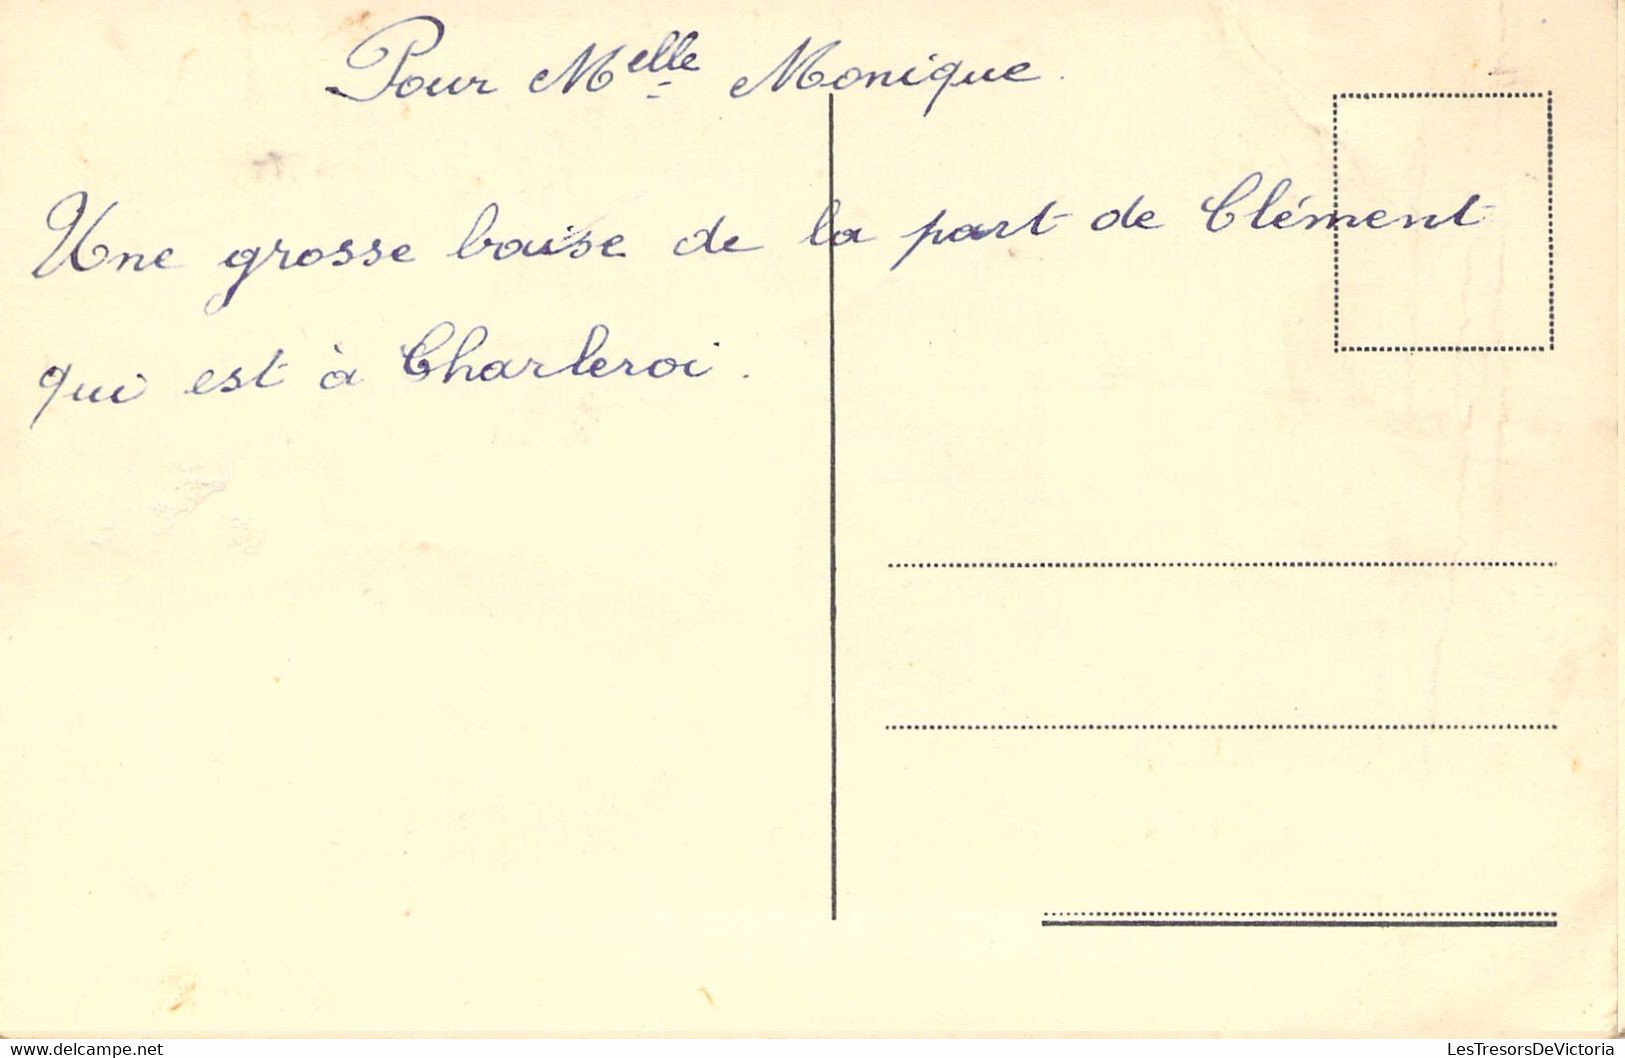 Pour Melle Monique.
Une grosse baise de la part de Clément
qui est à Charleroi.
delcampe.net
LesTresorsDeVictoria